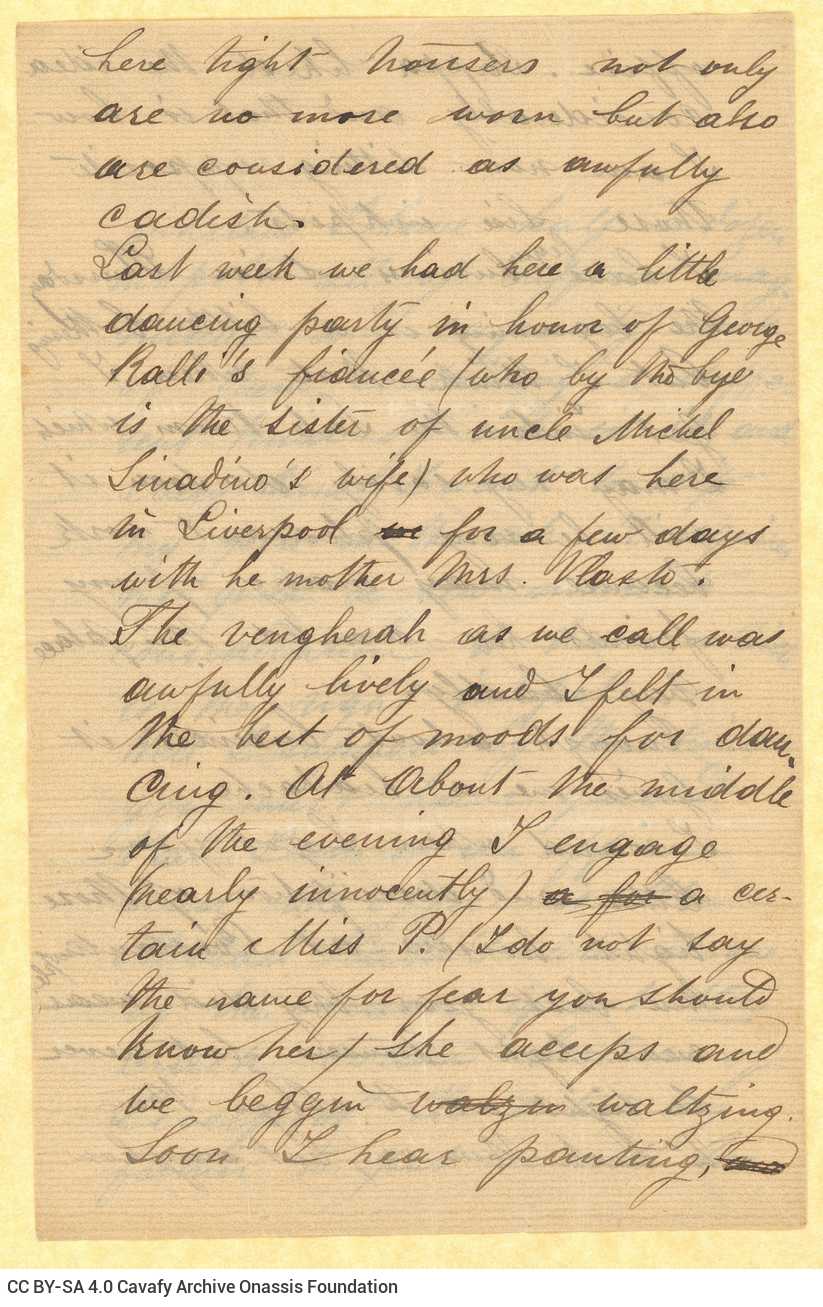 here tight trousers not only
are no more worn but also
are considered as awfully
cadish.
Last week we had here a little
dancing party in honor of George
Ralli's fiancée (who by the bye
is the sister of uncle Michel
Sinadino's wife) who was here
in Liverpool in for a few days
with he mother Mrs. Vlasto.
The vengherah as we call was
awfully lively and I felt in
the best of moods for dan-
cing. At About the middle
of the evening I engage
(nearly innocently) a for a cer-
tain Miss P. (I do not say
the name for fear you should
know her) she acceps and
we beggin walzin waltzing.
Soon I hear panting,
CC BY-SA 4.0 Cavafy Archive Onassis Foundation